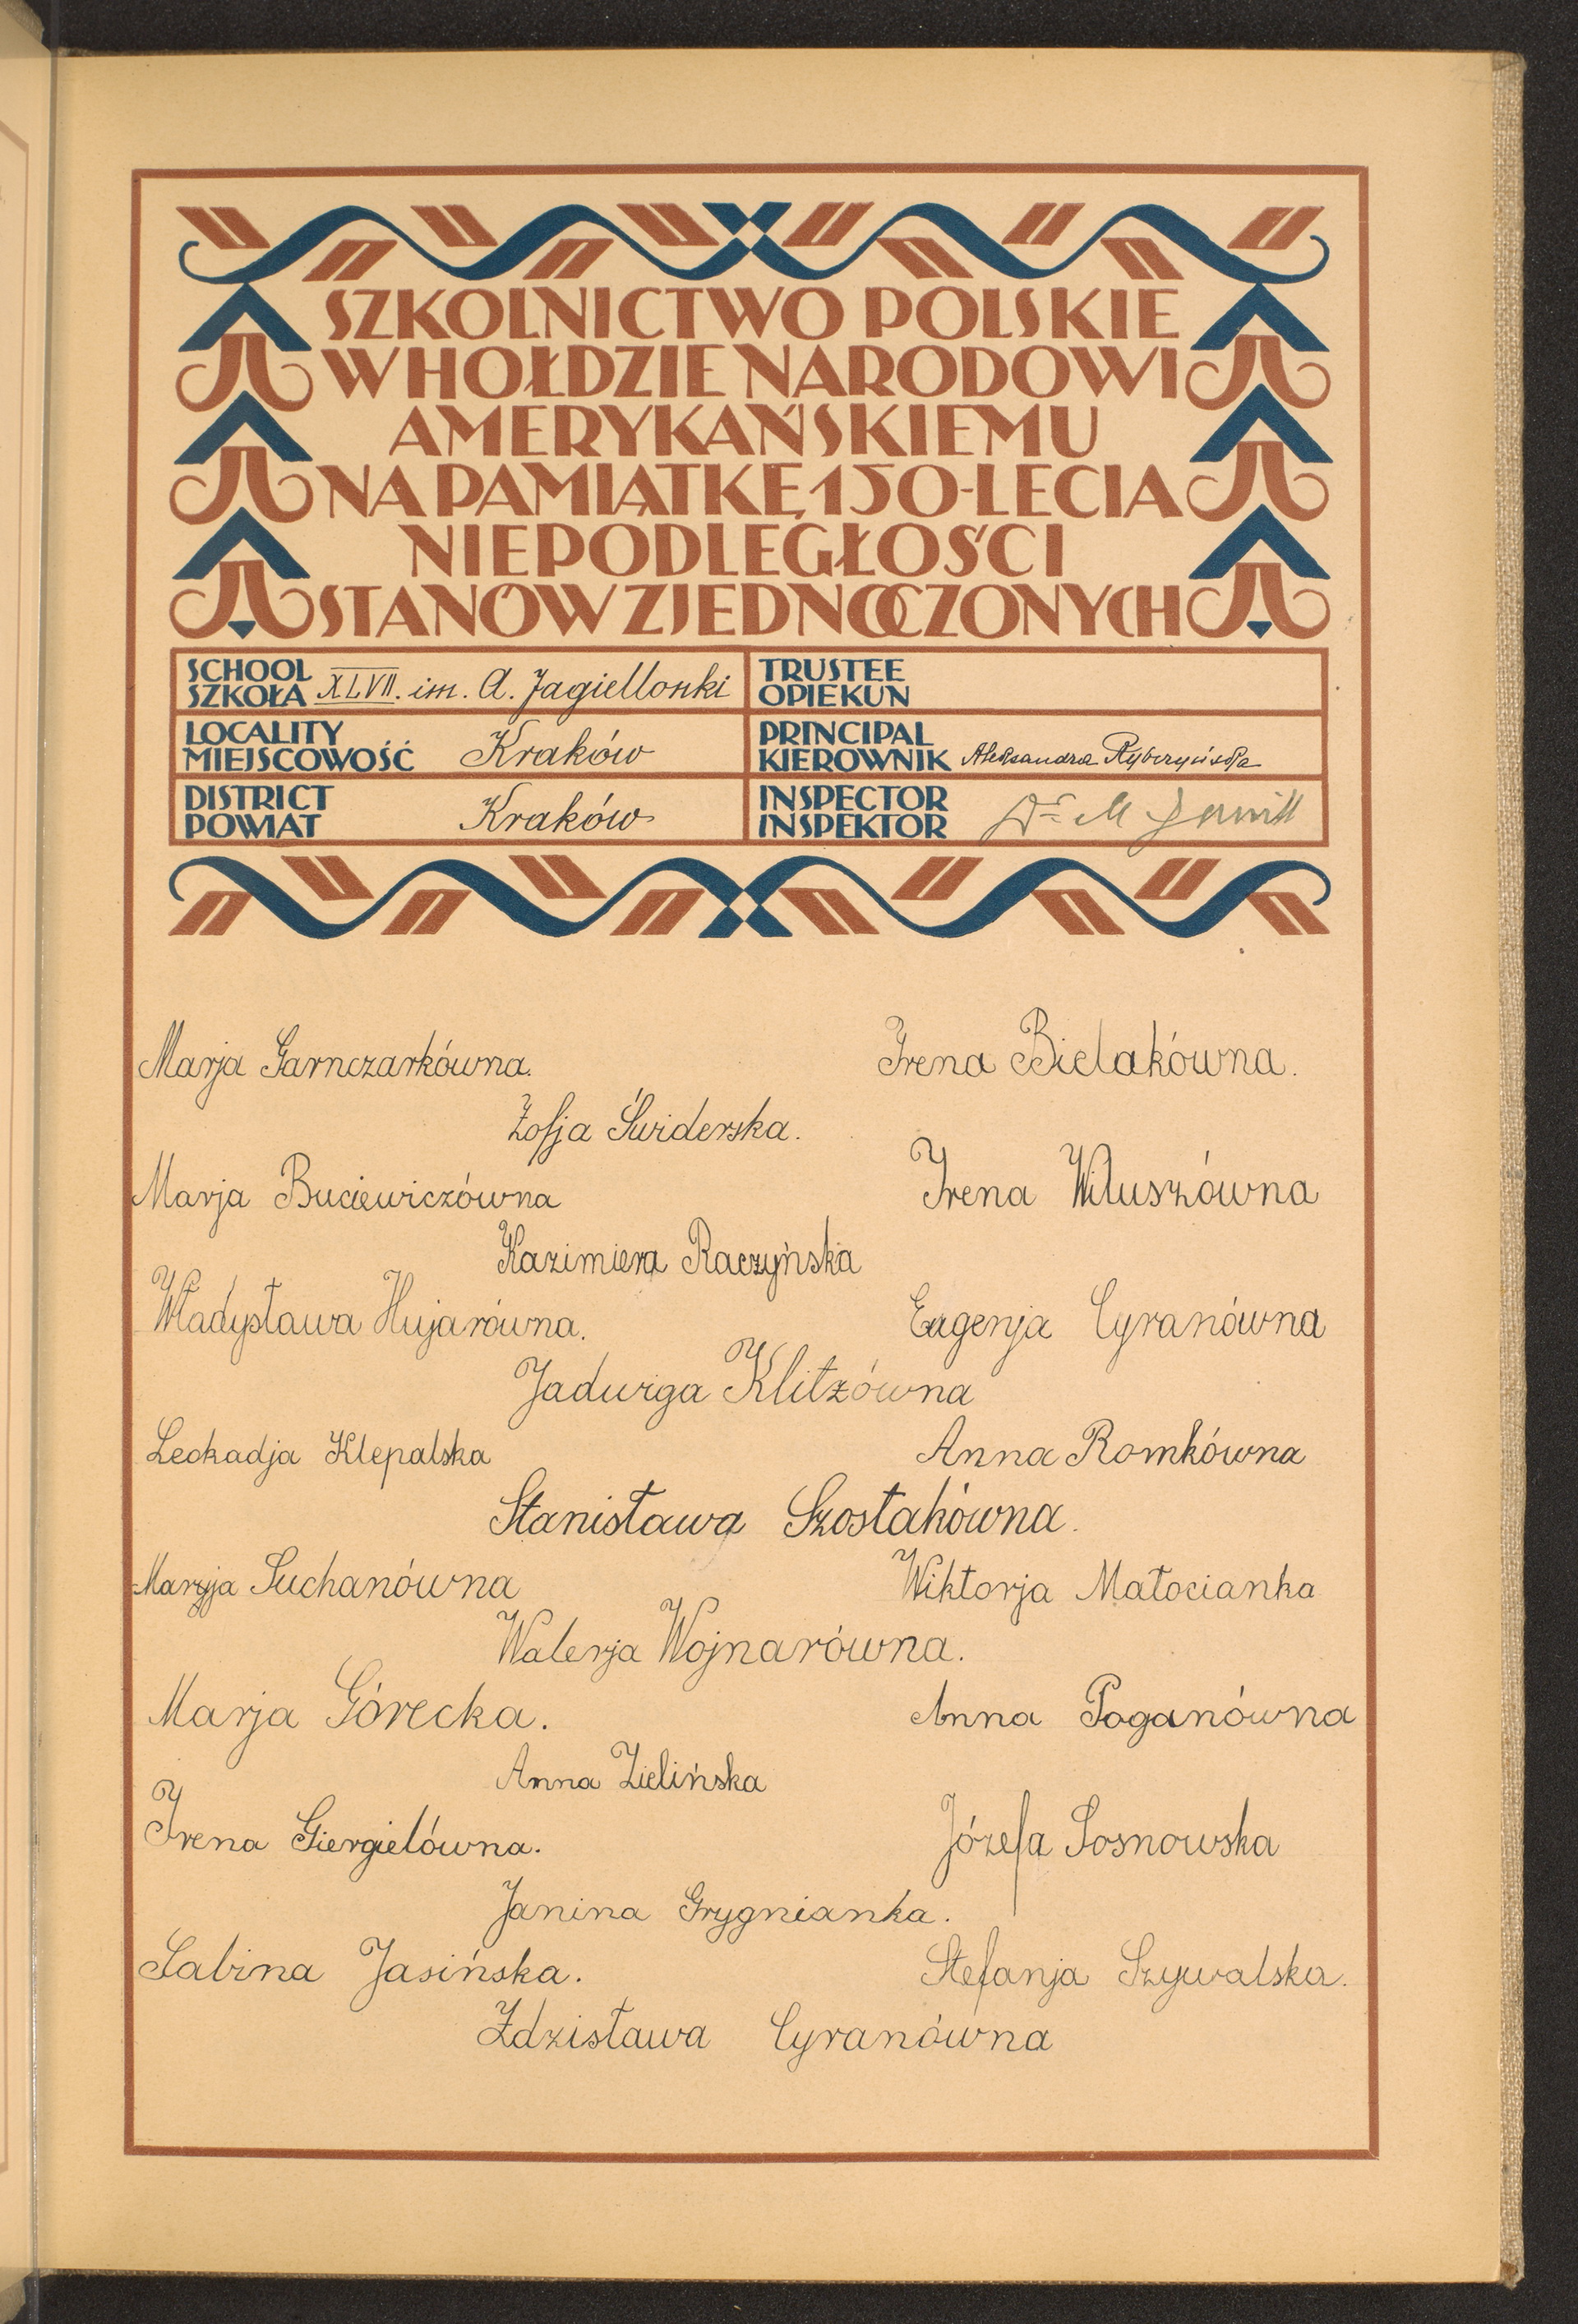 SZKOLNICTWO POLSKIE
W HOŁDZIE NARODOWI
AMERYKAŃSKIEMU
NA PAMIĄTKĘ 150-LECIA
NIEPODLEGŁOŚCI
STANÓW ZJEDNOCZONYCH
SCHOOL
SZKOŁA XLVII. im. A. Jagiellonki
TRUSTEE
OPIEKUN
LOCALITY
MIEJSCOWOŚĆ Kraków
PRINCIPAL
KIEROWNIK Aleksandra Rybczyńska
DISTRICT
POWIAT Kraków
INSPECTOR
INSPEKTOR Dr M
Marja Garnczarkówna.
Irena Bielakówna.
Zofja Świderska.
Marja Buciewiczówna
Irena Wiluszówna
Kazimiera Raczyńska
Władysława Hujarówna.
Eugenja Cyranówna
Jadwiga Klitzówna
Leokadja Klepalska
Anna Romkówna
Stanisława Szostakówna.
Maryja Suchanówna
Wiktorja Małocianka
Walerja Wojnarówna.
Marja Górecka.
Anna Poganówna
Anna Zielińska
Irena Giergielówna.
Józefa Sosnowska
Janina Grygnianka.
Sabina Jasińska.
Stefanja Szywalska.
Zdzisława Cyranówna